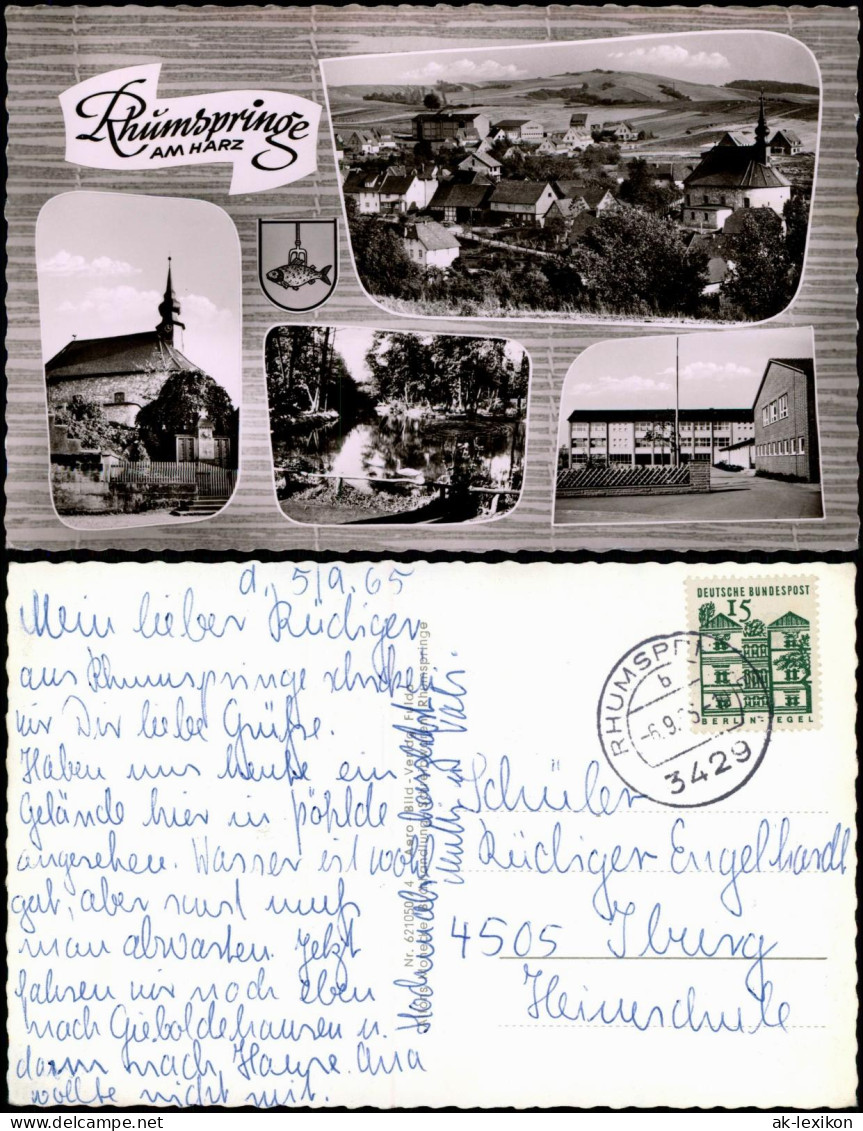 Rhumspringe
AM HARZ
d. 5/9.65
Mein lieber Rüdiger
aus Rhumspringe schicken
wir Dir liebe Grüße.
Haben uns heute ein
Gelände hier in pöhlde
angesehen. Wasser ist wohl
gut, aber sonst muß
man abwarten. Jetzt
fahren wir noch eben
nach Gieboldehausen u.
dann nach Hause. Ana
wollte nicht mit.
Mutti u. Vati.
Nr. 621050
Aero-Bild-Verlag, Fulda
Rhumspringe
DEUTSCHE BUNDESPOST
15
BERLIN-TEGEL
RHUMSPRINGE
b
-6.9.65
3429
Schüler
Rüdiger Engelhardt
4505 Iburg
Heimschule
© oldthing.de
ak-lexikon